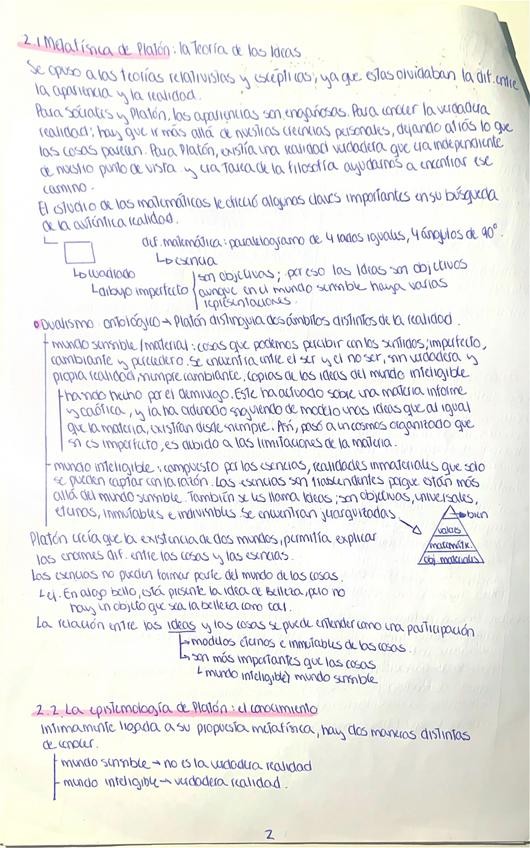 2.1 Metafísica de Platón: la teoría de las Ideas
Se opuso a las teorías relativistas y escépticas, ya que estas olvidaban la dif. entre
la apariencia y la realidad.
Para Sócrates y Platón, las apariencias son engañosas. Para conocer la verdadera
realidad, hay que ir más allá de nuestras creencias personales, dejando atrás lo que
las cosas parecen. Para Platón, existía una realidad verdadera que era independiente
de nuestro punto de vista y era tarea de la filosofía ayudarnos a encontrar ese
camino.
El estudio de las matemáticas le ofreció algunas claves importantes en su búsqueda
de la auténtica realidad.
def. matemática: paralelogramo de 4 lados iguales, 4 ángulos de 90°.
esencia
cuadrado
dibujo imperfecto
son objetivas; por eso las Ideas son objetivas
aunque en el mundo sensible haya varias
representaciones.
Dualismo ontológico → Platón distinguía dos ámbitos distintos de la realidad.
mundo sensible/material: cosas que podemos percibir con los sentidos; imperfecto,
cambiante y perecedero. Se encuentra entre el ser y el no ser, sin verdadera y
propia realidad, siempre cambiante. Copias de las ideas del mundo inteligible
ha sido hecho por el demiurgo. Este ha actuado sobre una materia informe
y caótica, y la ha ordenado siguiendo de modelo unas ideas que al igual
que la materia, existían desde siempre. Así, pasó a un cosmos organizado que
si es imperfecto, es debido a las limitaciones de la materia.
mundo inteligible: compuesto por las esencias, realidades inmateriales que solo
se pueden captar con la razón. Las esencias son trascendentes porque están más
allá del mundo sensible. También se les llama Ideas; son objetivas, universales,
eternas, inmutables e indivisibles. Se encuentran jerarquizadas
bien
valores
matemátic.
obj. materiales
Platón creía que la existencia de dos mundos, permitía explicar
las enormes dif. entre las cosas y las esencias.
Las esencias no pueden formar parte del mundo de las cosas.
ej. En algo bello, está presente la idea de Belleza, pero no
hay un objeto que sea la belleza como tal.
La relación entre las ideas y las cosas se puede entender como una participación
modelos eternos e inmutables de las cosas.
son más importantes que las cosas
mundo inteligible > mundo sensible
2.2. La epistemología de Platón: el conocimiento
Íntimamente ligada a su propuesta metafísica, hay dos maneras distintas
de conocer.
mundo sensible → no es la verdadera realidad
mundo inteligible → verdadera realidad.
2